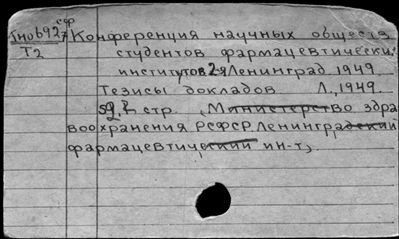 сф
Конференция научных обществ
Т2 студентов фармацевтически.
институтов 2-я Ленинград 1949.
Тезисы докладов Л., 1949.
стр. (Министерство здра
воохранения РСФСР. Ленинградский
фармацевтический ин-т)